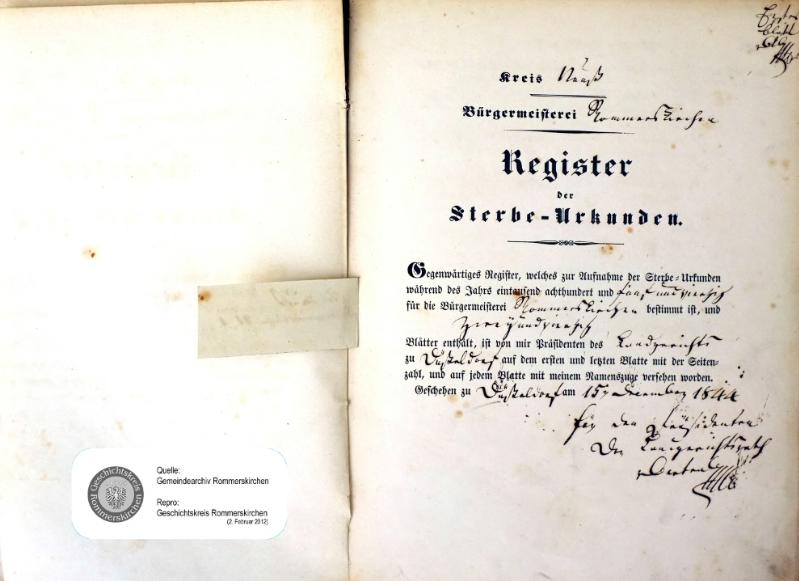 Erstes
Blatt
Kreis Neuß
Bürgermeisterei Rommerskirchen
Register
der
Sterbe-Urkunden.
Gegenwärtiges Register, welches zur Aufnahme der Sterbe-Urkunden
während des Jahrs eintausend achthundert und fünf und vierzig
für die Bürgermeisterei Rommerskirchen bestimmt ist, und
zwey und vierzig
Blätter enthält, ist von mir Präsidenten des Landgerichts
zu Düsseldorf auf dem ersten und letzten Blatte mit der Seiten-
zahl, und auf jedem Blatte mit meinem Namenszuge versehen worden.
Geschehen zu Düsseldorf am 15. December 1844
Für den Präsidenten
Der Landgerichtsrath
Geschichtskreis
Rommerskirchen
Quelle:
Gemeindearchiv Rommerskirchen
Repro:
Geschichtskreis Rommerskirchen
(2. Februar 2012)